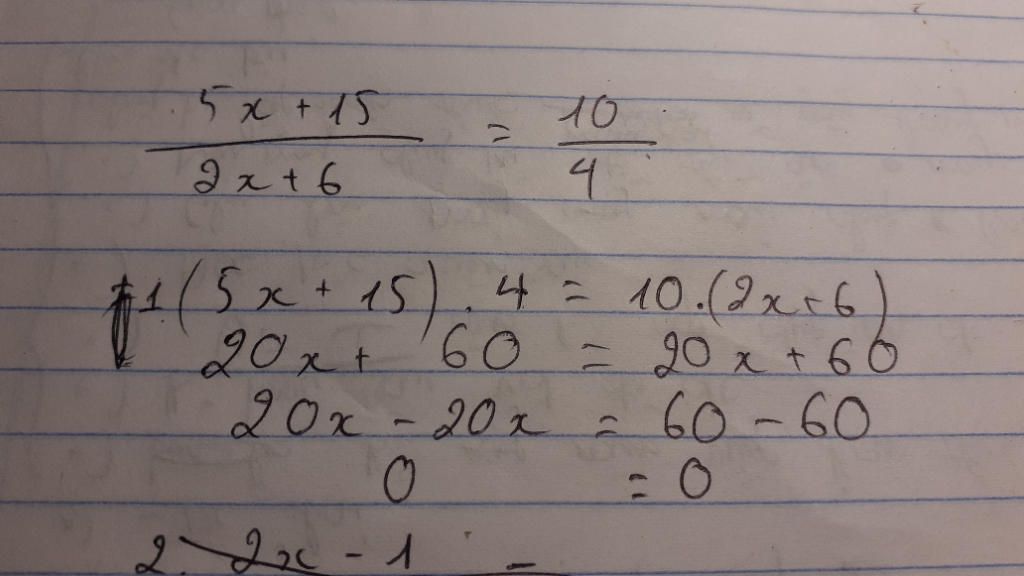 5x + 15 / 2x + 6 = 10 / 4
1. (5x + 15) . 4 = 10 . (2x + 6)
20x + 60 = 20x + 60
20x - 20x = 60 - 60
0 = 0
2. 2x - 1 =